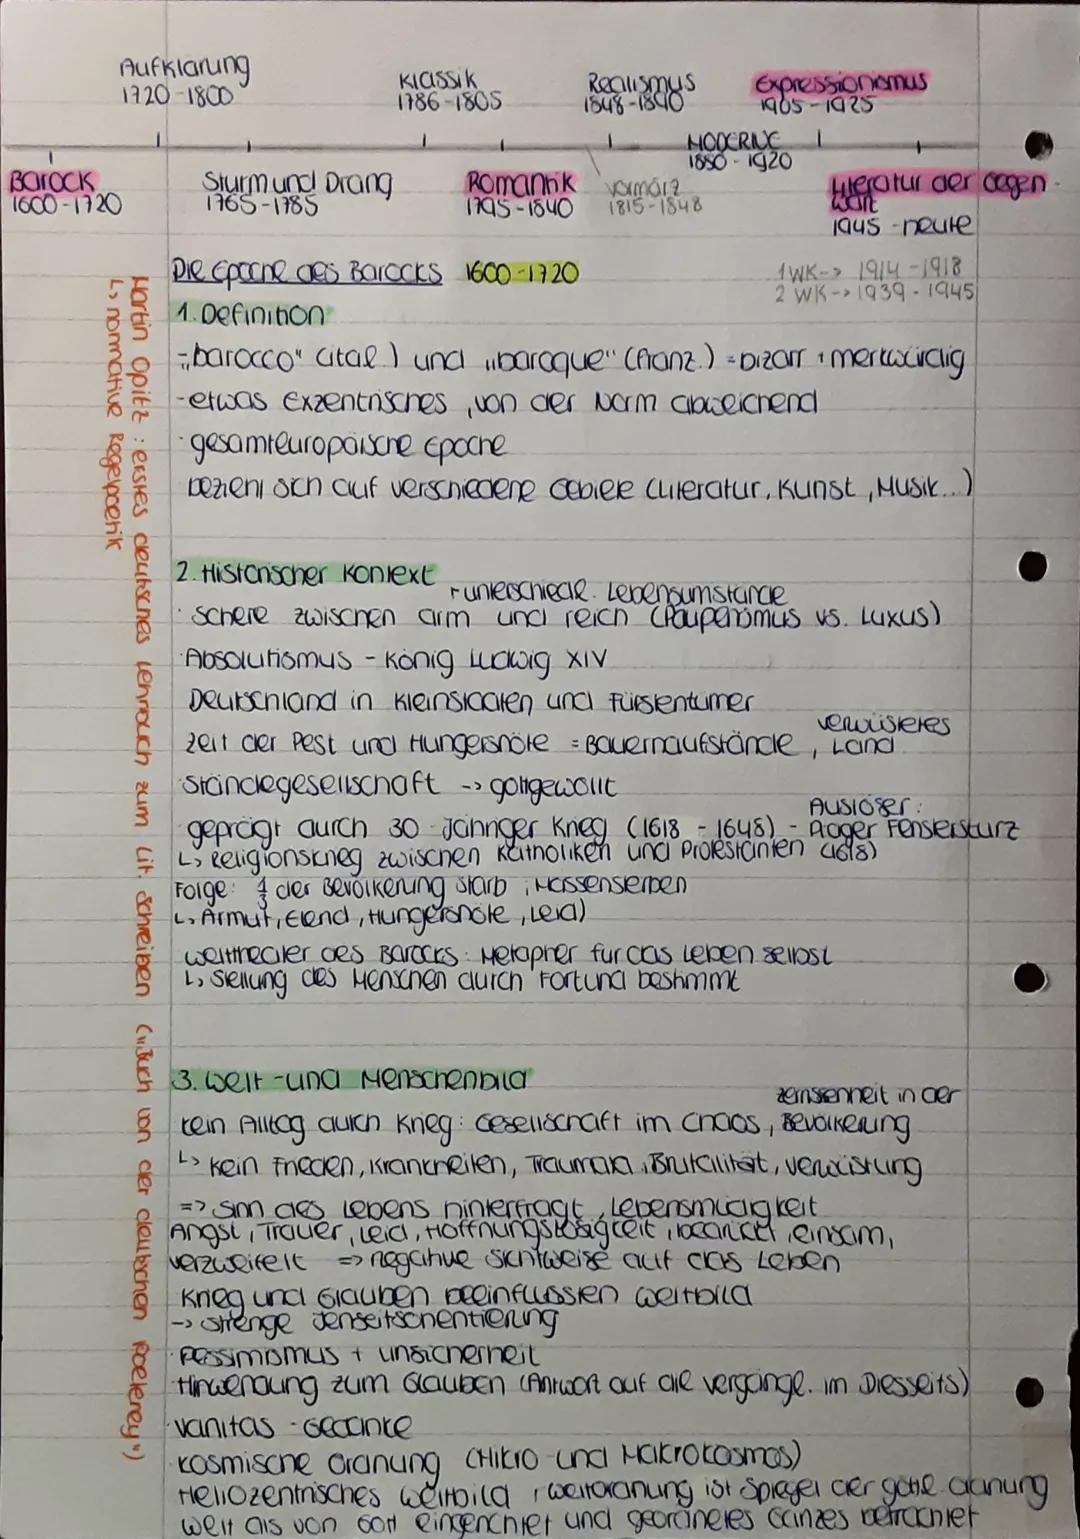 Aufklärung
1720-1800
Klassik
1786-1805
Realismus
1848-1890
Expressionismus
1905-1925
MODERNE
1880-1920
Barock
1600-1720
Sturm und Drang
1765-1785
Romantik
1795-1840
Vormärz
1815-1848
Literatur der Gegen-
wart
1945-heute
Die Epoche des Barocks 1600-1720
1 WK-> 1914-1918
2 WK-> 1939-1945
1. Definition
-„barocco" (ital.) und „baroque" (franz.) = bizarr, merkwürdig
-etwas Exzentrisches, von der Norm abweichend
· gesamteuropäische Epoche
bezieht sich auf verschiedene Gebiete (Literatur, Kunst, Musik...)
2. Historischer Kontext
unterschiedl. Lebensumstände
· Schere zwischen arm und reich (Pauperismus vs. Luxus)
·Absolutismus - König Ludwig XIV
Deutschland in Kleinstaaten und Fürstentümer
verwüstetes
Zeit der Pest und Hungersnöte = Bauernaufstände, Land
·Ständegesellschaft -> gottgewollt
Auslöser:
geprägt durch 30-Jähriger Krieg (1618 - 1648) - Prager Fenstersturz
↳ Religionskrieg zwischen Katholiken und Protestanten (1618)
Folge: 1/3 der Bevölkerung starb, Massensterben
↳ Armut, Elend, Hungersnöte, Leid)
Welttheater des Barocks: Metapher für das Leben selbst
↳ Stellung des Menschen durch Fortuna bestimmt
3. Welt-und Menschenbild
zerrissenheit in der
kein Alltag durch Krieg: Gesellschaft im Chaos, Bevölkerung
↳ kein Frieden, Krankheiten, Traumata, Brutalität, Verwüstung
=> Sinn des Lebens hinterfragt, Lebensmüdigkeit
Angst, Trauer, Leid, Hoffnungslosigkeit, bedrückt, einsam,
verzweifelt => negative Sichtweise auf das Leben
Krieg und Glauben beeinflussten Weltbild
-> strenge Jenseitsorientierung
· Pessimismus + Unsicherheit
·Hinwendung zum Glauben (Antwort auf die vergängl. im Diesseits)
·Vanitas-Gedanke
kosmische Ordnung (Mikro-und Makrokosmos)
Heliozentrisches Weltbild, Weltordnung ist Spiegel der göttl. Ordnung
Welt als von Gott eingerichtet und geordnetes Ganzes betrachtet
Martin Opitz: erstes deutsches Lehrbuch zum Lit. Schreiben („Buch von der deutschen Poeterey")
↳ normative Regelpoetik